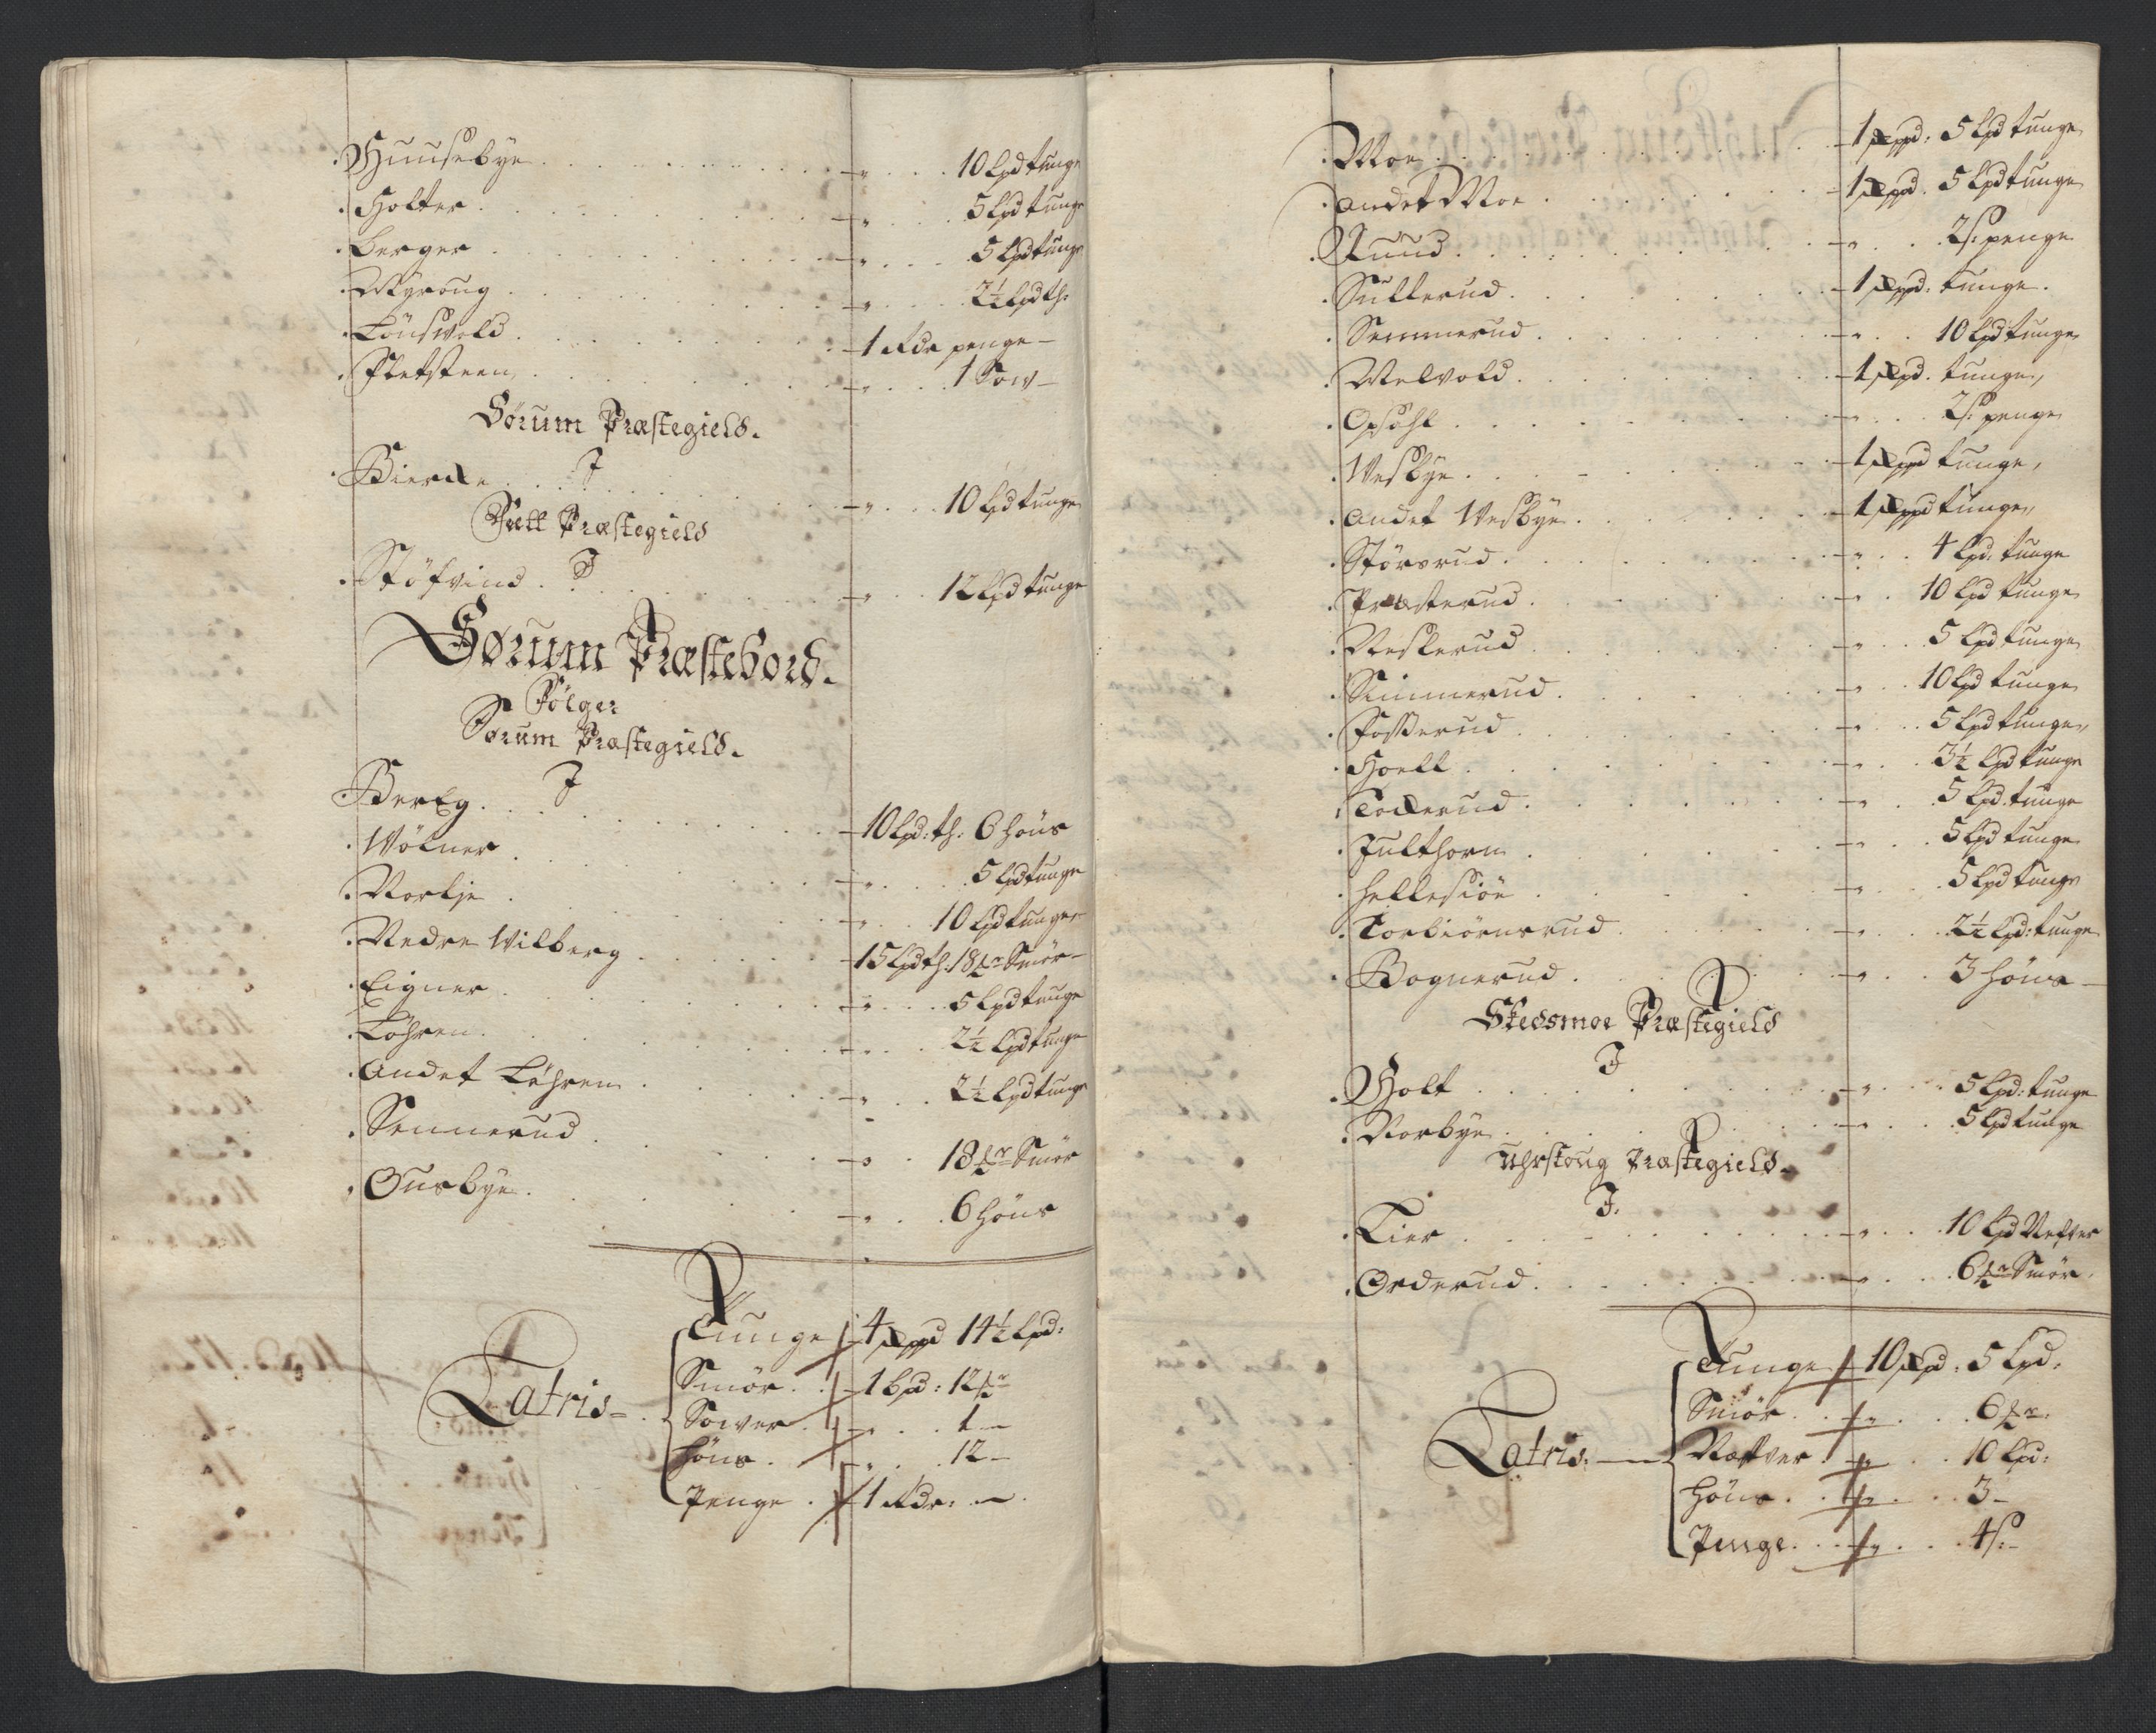 Huusebye . . . 10 Lpd tunge
Holter . . . 5 Lpd tunge
Berger . . . 5 Lpd tunge
Myroug . . . 2½ Lpd th:
Lönswold . . . 1 Rdr penge
Fletsteen . . . 1 Sow
Sørum Præstegield.
I
Bierche . . . 10 Lpd tunge
Fett Præstegield
I
Stöfvind . . . 12 Lpd tunge
Sørum Præstebord.
Følger
Sørum Præstegield.
I
Berlg . . . 10 Lpd: th: 6 höns
Wölner . . . 5 Lpd tunge
Norlje . . . 10 Lpd tunge
Nedre Wilberg . . . 15 Lpd th: 18 mr Smör
Eigner . . . 5 Lpd tunge
Löhren . . . 2½ Lpd tunge
Andet Löhren . . . 2½ Lpd tunge
Sennerud . . . 18 mr Smör
Ousbye . . . 6 höns
Latris
Tunge 4 Skppd 14½ Lpd:
Smör . . 1 bpd: 12 mr
Sower . . . 1
höns . . . 12
Penge . 1 Rdr:
Moe . . . 1 Skppd: 5 Lpd tunge
Andet Moe . . . 1 Skppd. 5 Lpd tunge
Ruud . . . 2 s: penge
Sullerud . . . 1 Skppd: tunge.
Semmerud . . . 10 Lpd tunge
Melvold . . . 1 Skpd. tunge
Opsahl . . . 2 s: penge
Wesbye . . . 1 Skppd tunge
Andet Wesbye . . . 1 Skppd tunge
Störsrud . . . 4 Lpd. tunge
Præsterud . . . 10 Lpd tunge
Neskerud . . . 5 Lpd tunge
Simmerud . . . 10 Lpd tunge
Fosserud . . . 5 Lpd tunge
Hoell . . . 3½ Lpd tunge
Tocherud . . . 5 Lpd. tunge
Julthorn . . . 5 Lpd tunge
Hellesiöe . . . 5 Lpd tunge
Torbiörnsrud . . . 2½ Lpd: tunge
Bognerud . . . 3 höns
Skedsmoe Præstegield
I
Holt . . . 5 Lpd: tunge
Norbye . . . 5 Lpd tunge
Uhrskoug Præstegield.
I.
Lier . . . 10 Lpd Nefver
Orderud . . . 6 mr Smör.
Latris.
Tunge 10 Skpd: 5 Lpd.
Smör . . . 6 mr.
Næfver . . . 10 Lpd:
höns . . . 3
Penge . . . 4 s: